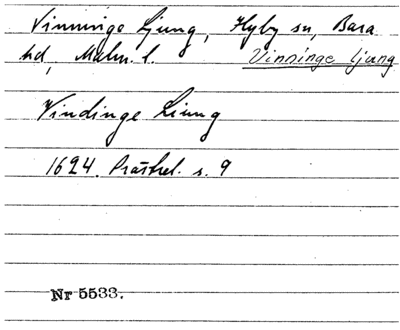 Vinninge Ljung, Hyby sn, Bara
hd, Malm. l. Vinninge ljung
Vindinge Liung
1624. Prästrel. s. 9
Nr 5533.